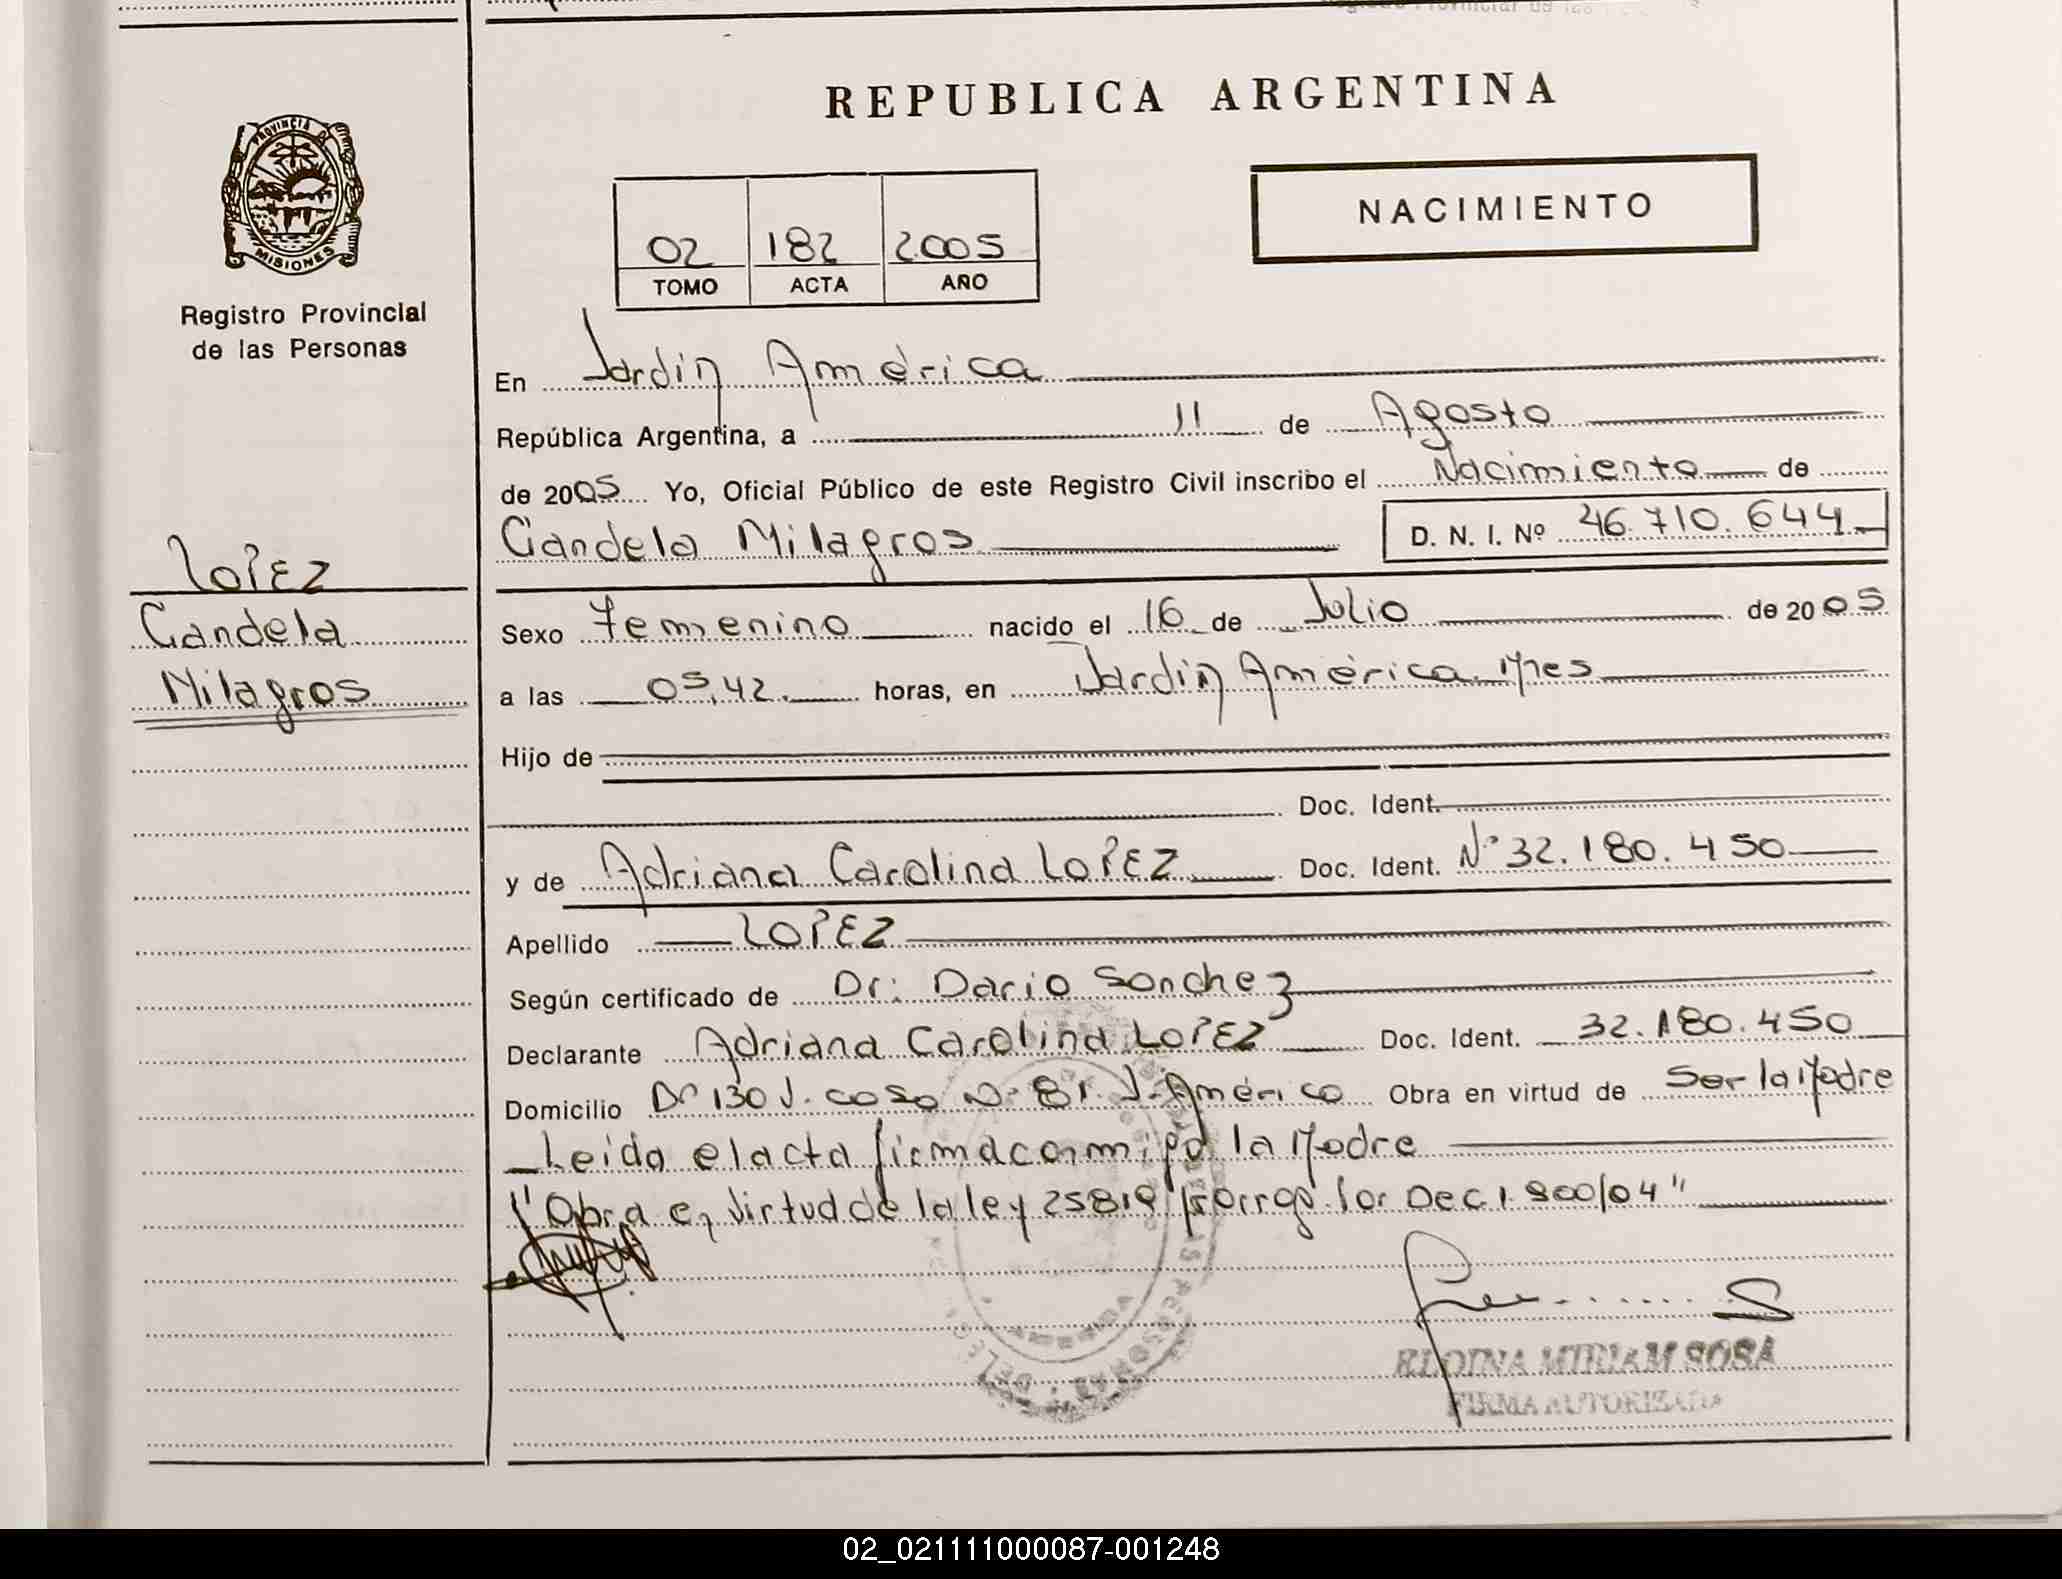 PROVINCIA D
MISIONES
Registro Provincial
de las Personas
LOPEZ
Candela
Milagros
REPUBLICA ARGENTINA
NACIMIENTO
02 182 2005
TOMO ACTA AÑO
En Jardin América
República Argentina, a 11 de Agosto
de 2005 Yo, Oficial Público de este Registro Civil inscribo el Nacimiento de
Candela Milagros D. N. I. Nº 46.710.644
Sexo Femenino nacido el 16 de Julio de 2005
a las 05,42. horas, en Jardin América. Mnes
Hijo de
Doc. Ident.
y de Adriana Carolina LOPEZ Doc. Ident. Nº 32.180.450
Apellido LOPEZ
Según certificado de Dr: Dario Sanchez
Declarante Adriana Carolina LOPEZ Doc. Ident. 32.180.450
Domicilio Bº 130 V. casa Nº 81. J. América Obra en virtud de Ser la Madre
Leida el acta firma conmigo la Madre
"Obra en virtud de la ley 25819 Prorrog. Por Dec 1.900/04"
ELOINA MIRIAM SOSA
FIRMA AUTORIZADA
02_021111000087-001248